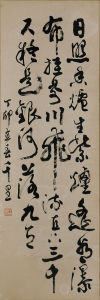 日照香爐生紫煙遙看瀑
布掛前川飛流直下三千
尺疑是銀河落九天
丁卯